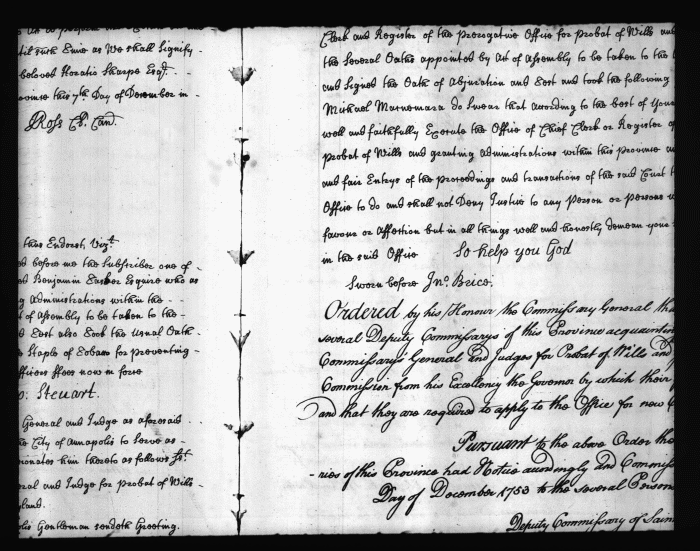 til such time as We shall Signify
beloved Horatio Sharpe Esqr.
ovince this 7th Day of December in
Ross Cl. Can.
thus Endorst, Vizt
ed before me the Subscriber one of
ed Benjamin Tasker Esquire who as
g Administrations within the
t of Assembly to be taken to the
d Test also Took the Usual Oath
e Staple of Tobaco for preventing
fficers ffees now in force
o: Steuart.
General and Judge as aforesaid
he City of Annapolis to Serve as
monates him thereto as follows Sst.
eral and Judge for Probat of Wills
yland.
olis Gentleman sendeth Greeting.
Clerk and Register of the prerogative Office for probat of Wills and
the Several Oaths appointed by Act of Assembly to be taken to the
and Signed the Oath of Abjuration and Test and took the following
Michael Macnemara do Swear that according to the best of your
well and faithfully Execute the Office of Chief Clerk or Register of
probat of Wills and granting Administrations within this province an
and fair Entrys of the proceedings and transactions of the said Court t
Office to do and shall not Deny Justice to any Person or persons w
favour or Affection but in all things well and honestly demean your
in the said Office So help you God
Sworn before Jno. Brice.
Ordered by his Honour the Commissary General tha
several Deputy Commissarys of this Province acquaintin
Commissarys General and Judges for Probat of Wills and
Commission from his Excellency the Governor by which their
and that they are required to apply to the Office for new C
Pursuant to the above Order the
ries of this Province had Notice accordingly and Commiss
Day of December 1753 to the several Person
Deputy Commissary of Sain